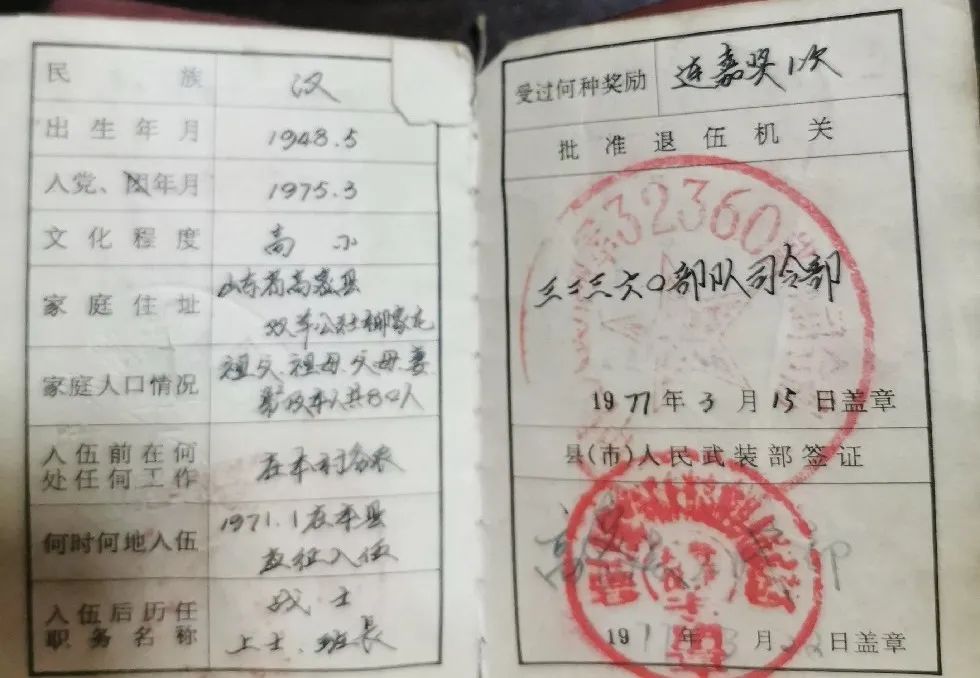 民族 汉
出生年月 1948.5
入党、团年月 1975.3
文化程度 高小
家庭住址 山东省高密县
双羊公社
家庭人口情况 祖父.祖母.父母.妻
入伍前在何
处任何工作 在本村务农
何时何地入伍 1971.1在本县
应征入伍
入伍后历任
职务名称 战士
上士.班长
受过何种奖励 连嘉奖1次
批准退伍机关
32360
三二三六〇部队司令部
1977年3月15日盖章
县(市)人民武装部签证
197 年3月22日盖章